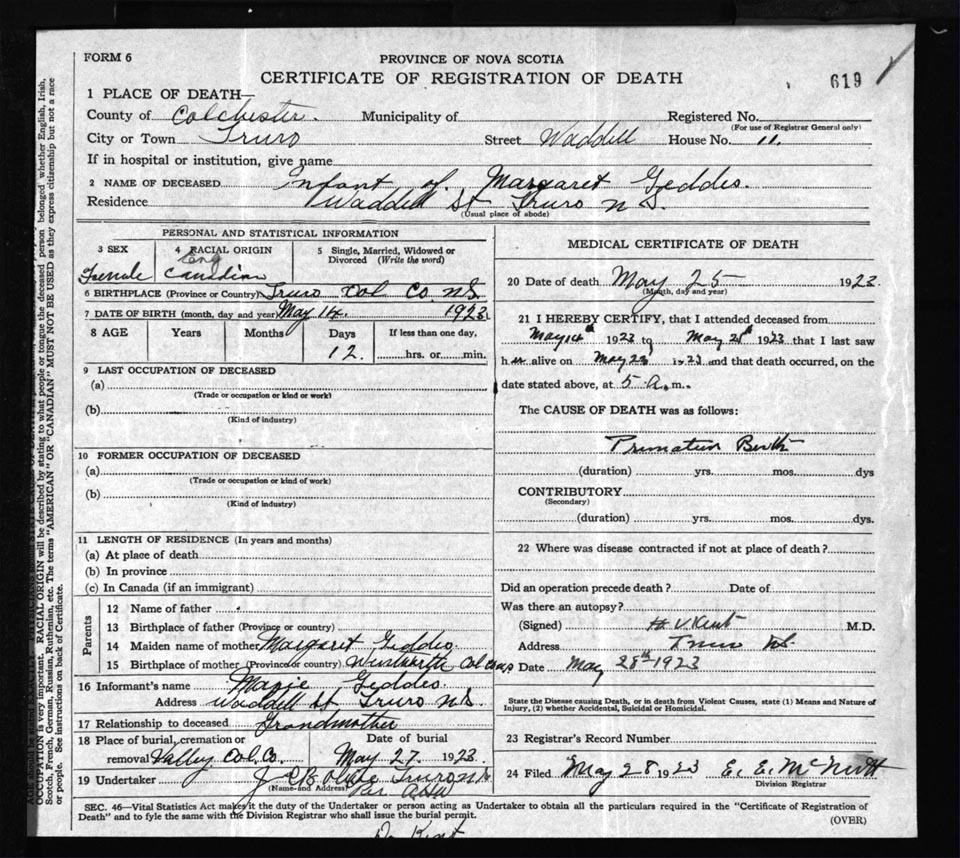 FORM 6
PROVINCE OF NOVA SCOTIA
CERTIFICATE OF REGISTRATION OF DEATH
619
1 PLACE OF DEATH—
County of Colchester. Municipality of Registered No.
(For use of Registrar General only)
City or Town Truro Street Waddell House No. 11.
If in hospital or institution, give name
2 NAME OF DECEASED Infant of Margaret Geddes.
Residence Waddell St Truro N S.
(Usual place of abode)
PERSONAL AND STATISTICAL INFORMATION
3 SEX 4 RACIAL ORIGIN 5 Single, Married, Widowed or Divorced (Write the word)
Eng
Female Canadian
6 BIRTHPLACE (Province or Country) Truro Col Co N.S.
7 DATE OF BIRTH (month, day and year) May 14. 1923.
8 AGE Years Months Days If less than one day,
12. hrs. or min.
9 LAST OCCUPATION OF DECEASED
(a)
(Trade or occupation or kind or work)
(b)
(Kind of industry)
10 FORMER OCCUPATION OF DECEASED
(a)
(Trade or occupation or kind of work)
(b)
(Kind of industry)
11 LENGTH OF RESIDENCE (In years and months)
(a) At place of death
(b) In province
(c) In Canada (if an immigrant)
Parents
12 Name of father
13 Birthplace of father (Province or country)
14 Maiden name of mother Margaret Geddes.
15 Birthplace of mother (Province or country) Wentworth Col
16 Informant's name Geddes.
Address Waddell St Truro N.S.
17 Relationship to deceased Grandmother
18 Place of burial, cremation or Date of burial
removal Valley Col. Co. May 27. 1923.
19 Undertaker Truro N.S.
(Name and Address) Per
MEDICAL CERTIFICATE OF DEATH
20 Date of death May 25 1923.
(Month, day and year)
21 I HEREBY CERTIFY, that I attended deceased from
May 14th 1923 to May 1923 that I last saw
her alive on May 23 1923 and that death occurred, on the
date stated above, at 5 a.m.
The CAUSE OF DEATH was as follows:
Premature Birth
(duration) yrs. mos. dys
CONTRIBUTORY
(Secondary)
(duration) yrs. mos. dys.
22 Where was disease contracted if not at place of death?
Did an operation precede death? Date of
Was there an autopsy?
(Signed) H. V. Kent M.D.
Address Truro NS.
Date May 28th 1923
State the Disease causing Death, or in death from Violent Causes, state (1) Means and Nature of
Injury, (2) whether Accidental, Suicidal or Homicidal.
23 Registrar's Record Number
24 Filed May 28 1923 E. E. McNutt
Division Registrar
SEC. 46—Vital Statistics Act makes it the duty of the Undertaker or person acting as Undertaker to obtain all the particulars required in the "Certificate of Registration of
Death" and to fyle the same with the Division Registrar who shall issue the burial permit.
(OVER)
Dr Kent
OCCUPATION is very important. RACIAL ORIGIN will be described by stating to what people or tongue the deceased person belonged whether English, Irish,
Scotch, French, German, Russian, Ruthenian, etc. The terms "AMERICAN" OR "CANADIAN" MUST NOT BE USED as they express citizenship but not a race
or people. See instructions on back of Certificate.